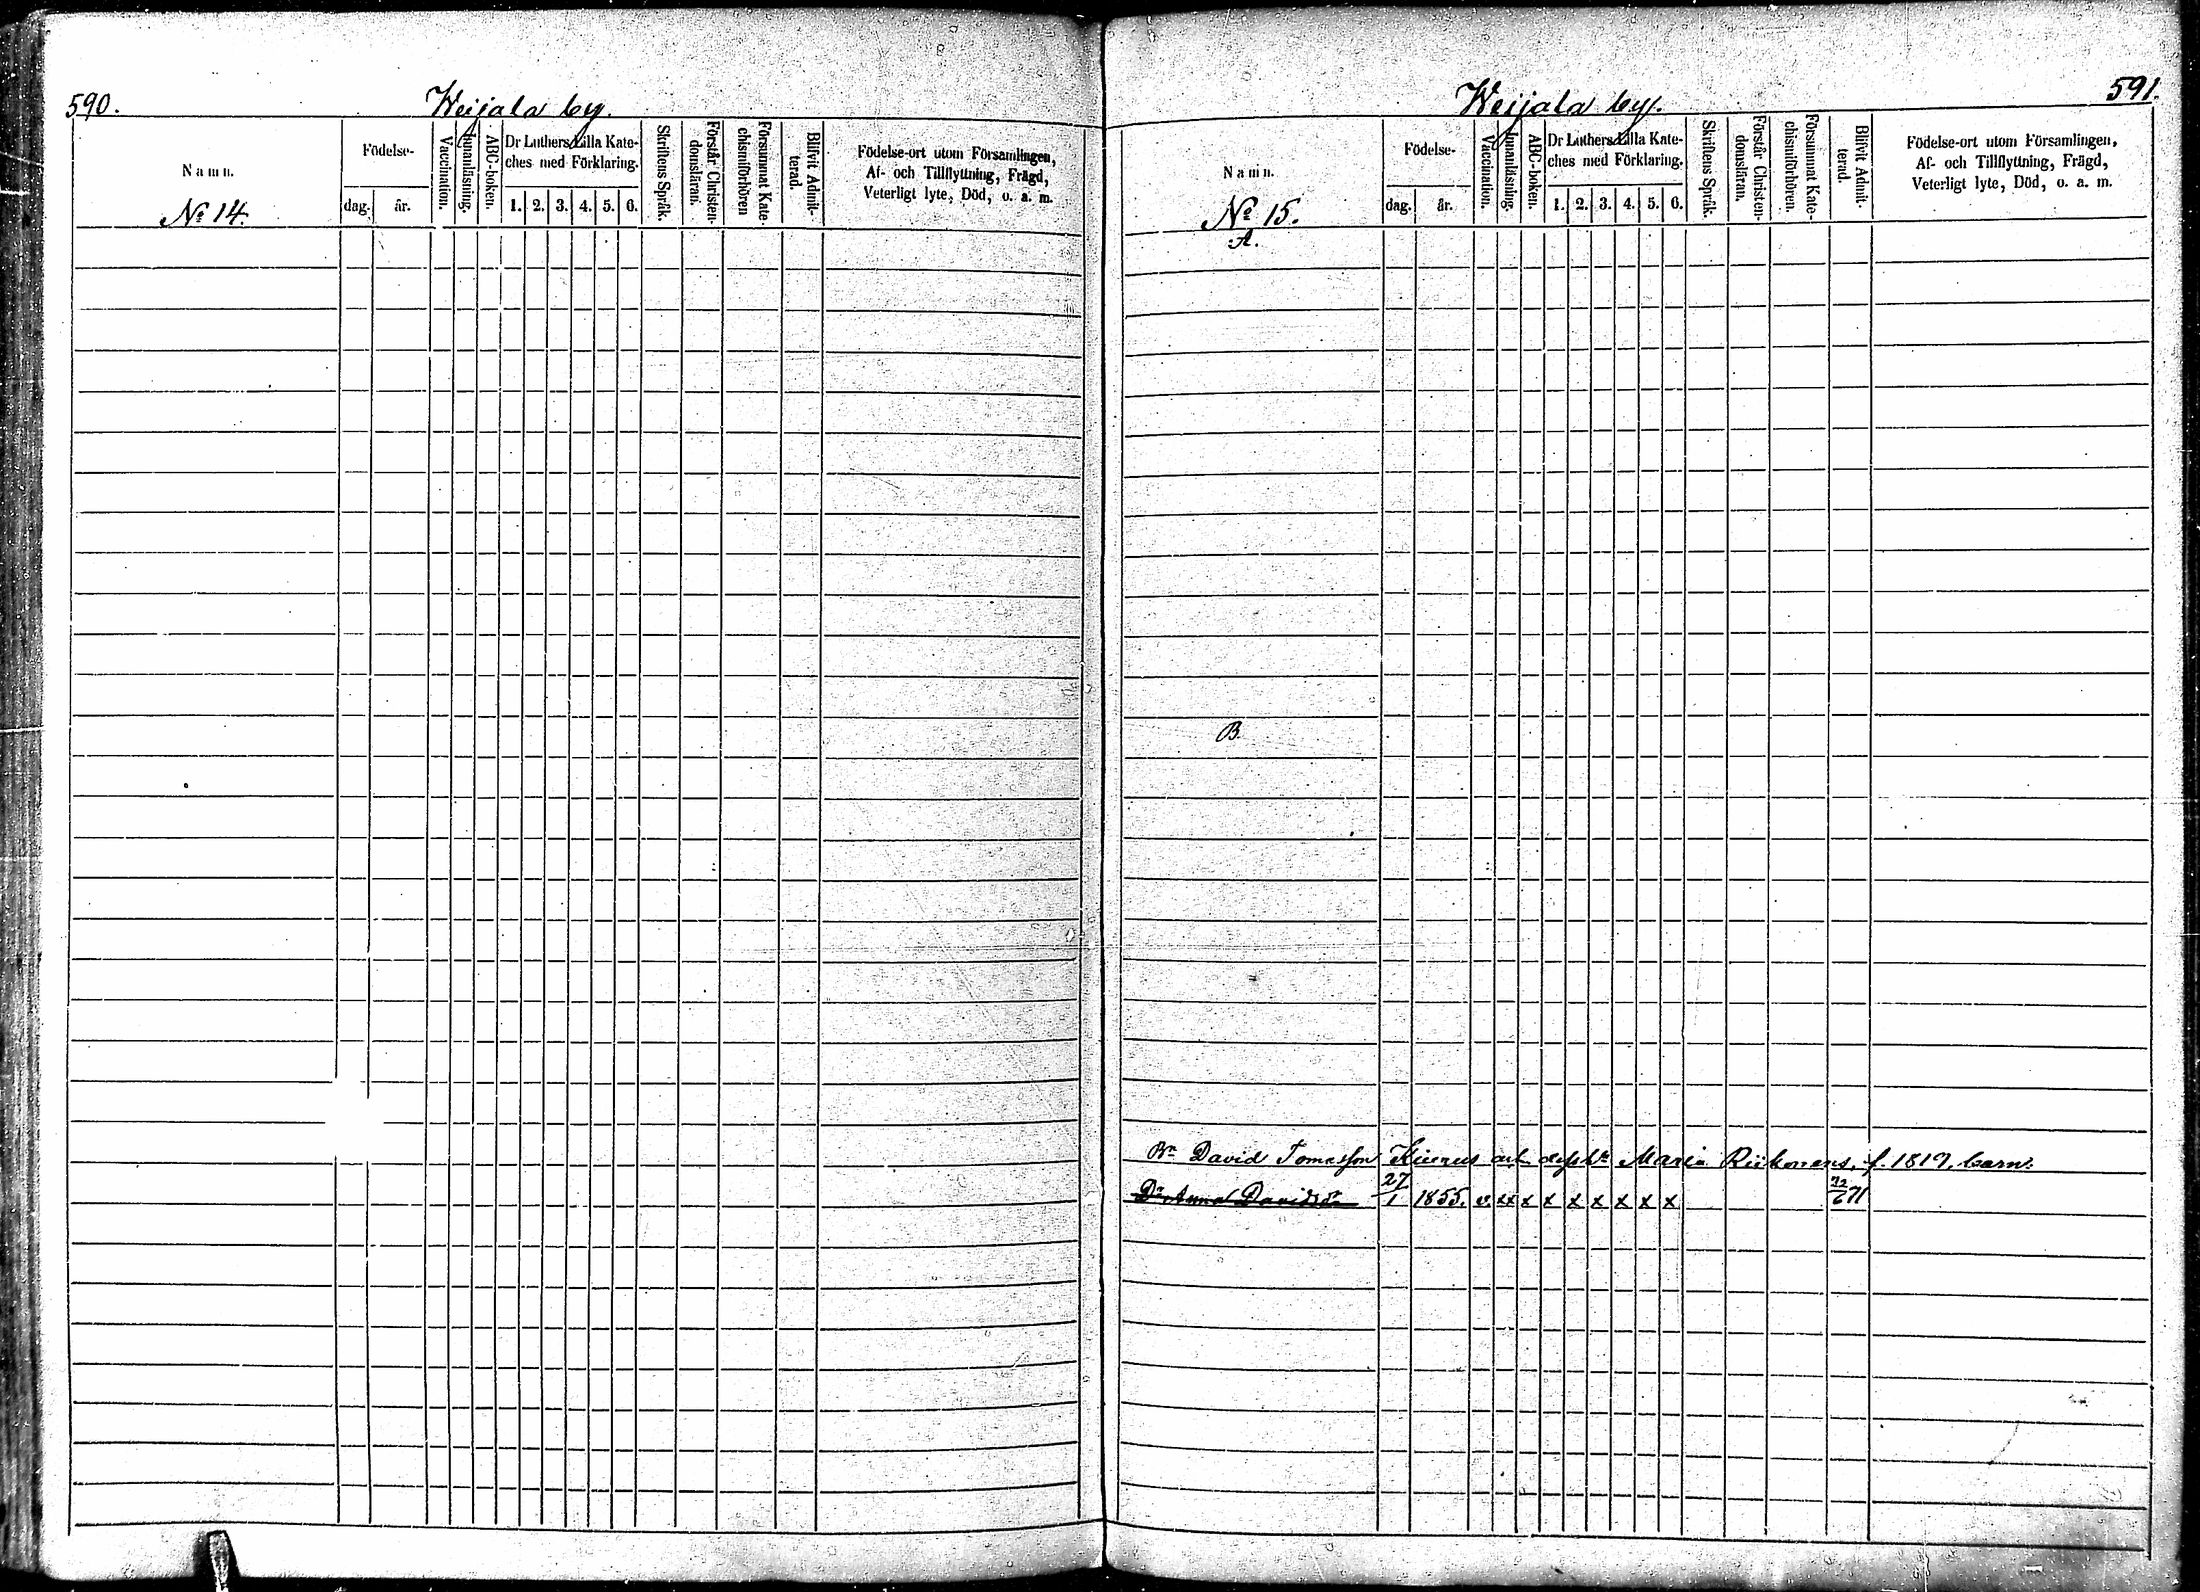 590.
Weijala by.
Namn.
Nº 14.
Födelse-
dag.
år.
Vaccination.
Innanläsning.
ABC-boken.
Dr Luthers Lilla Kate-
ches med Förklaring.
1. 2. 3. 4. 5. 6.
Skriftens Språk.
Förstår Christen-
domsläran.
Försummat Kate-
chismiförhören
Blifvit Admit-
terad.
Födelse-ort utom Församlingen,
Af- och Tillflyttning, Frägd,
Veterligt lyte, Död, o. a. m.
591.
Weijala by.
Namn.
Nº 15.
A.
Födelse-
dag.
år.
Vaccination.
Innanläsning.
ABC-boken.
Dr Luthers Lilla Kate-
ches med Förklaring.
1. 2. 3. 4. 5. 6.
Skriftens Språk.
Förstår Christen-
domsläran.
Försummat Kate-
chismiförhören.
Blifvit Admit-
terad.
Födelse-ort utom Församlingen,
Af- och Tillflyttning, Frägd,
Veterligt lyte, Död, o. a. m.
B.
Bn David Tomasson Maria Riikonens, f. 1817, barn:
Dr Anna Davidsdr 27/1 1855. v. xx x x x x x x x 71